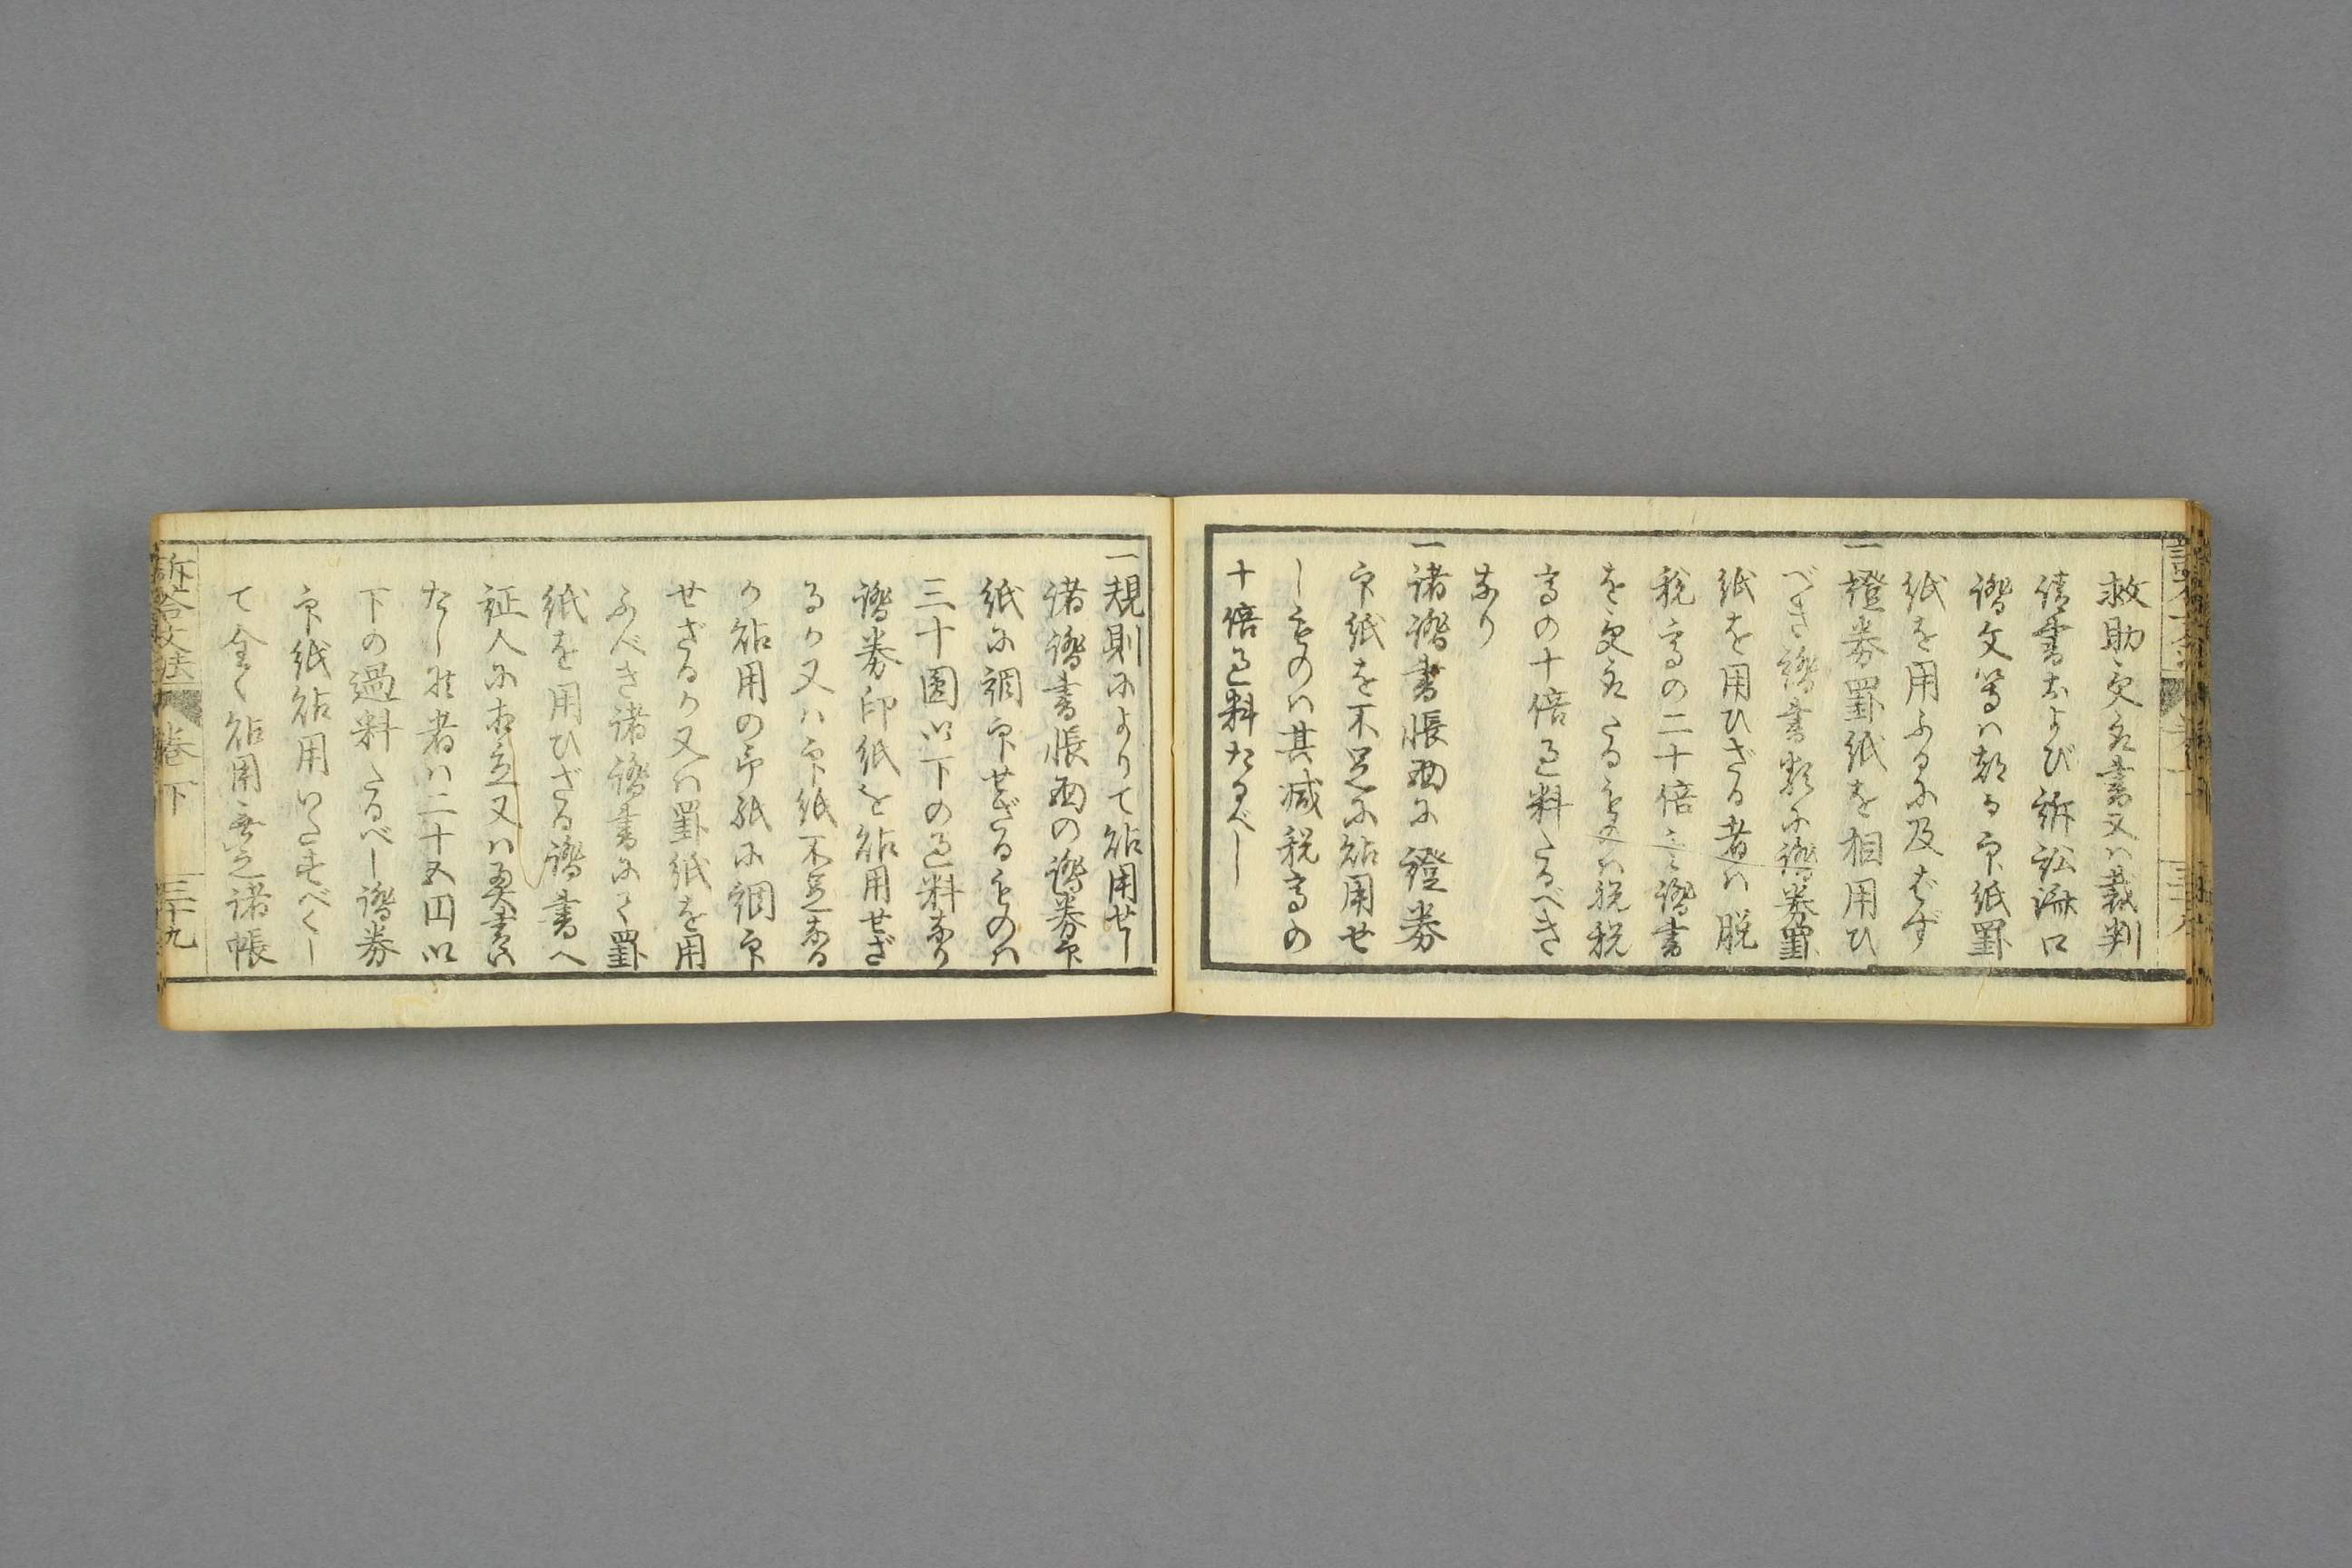 救助交名書又ハ裁判
請書および訴訟済口
證文等ハ都る印紙罫
紙を用ふるに及ばず
一證券罫紙を相用ひ
べき證書類に證券罫
紙を用ひざる者ハ脱
税高の二十倍
を
高の十倍過料たるべき
なり
一諸證書帳面に證券
印紙を不足に貼用せ
しものハ其減税高の
十倍過料たるべし
一規則によりて貼用せし
諸證書帳面の證券印
紙に調印せざるものハ
三十圓以下の過料なり
證券印紙を貼用せざ
るか又ハ印紙不足なる
か貼用の印紙に調印
せざるか又ハ罫紙を用
ふべき諸證書にて罫
紙を用ひざる證書へ
証人に相立又ハ奥書い
たし候者ハ二十五円以
下の過料たるべし證券
印紙貼用いたすべくし
て全く貼用無之諸帳
訴答文法 巻下 三十九